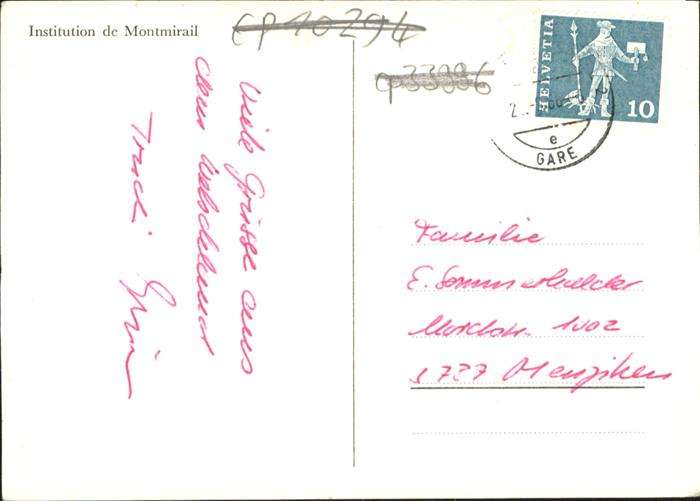 Institution de Montmirail
CP 10294
CP 33086
HELVETIA
10
e
GARE
Viele Grüsse aus
dem Welschland
Trudi
Familie
E. Sommerhalder
1002
5737 Menziken